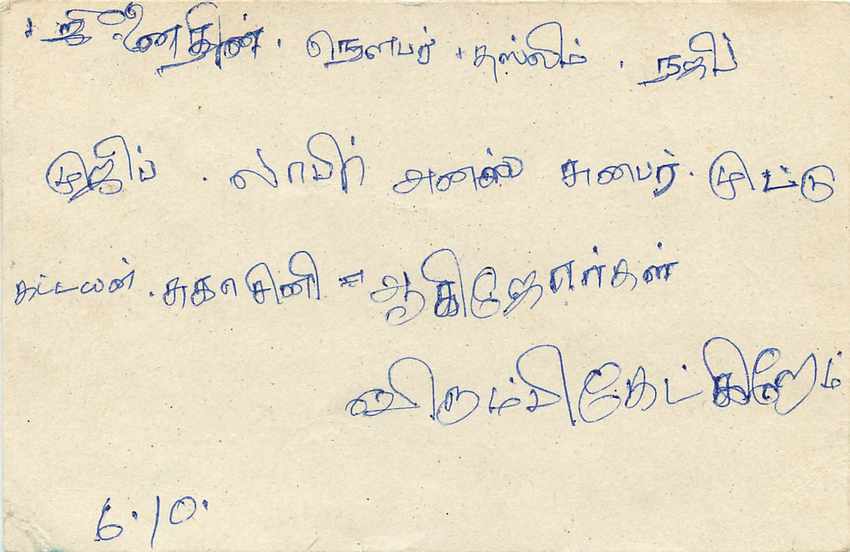 ஜுனைதீன். நௌபர் + தஸ்லிம். நஜிப்
முஜிப். லாபிர் அனஸ் சுபைர். முட்டு
கட்டயன். சுகாசினி = ஆகியோர்கள்
விரும்பி கேட்கிறோம்
6.10.